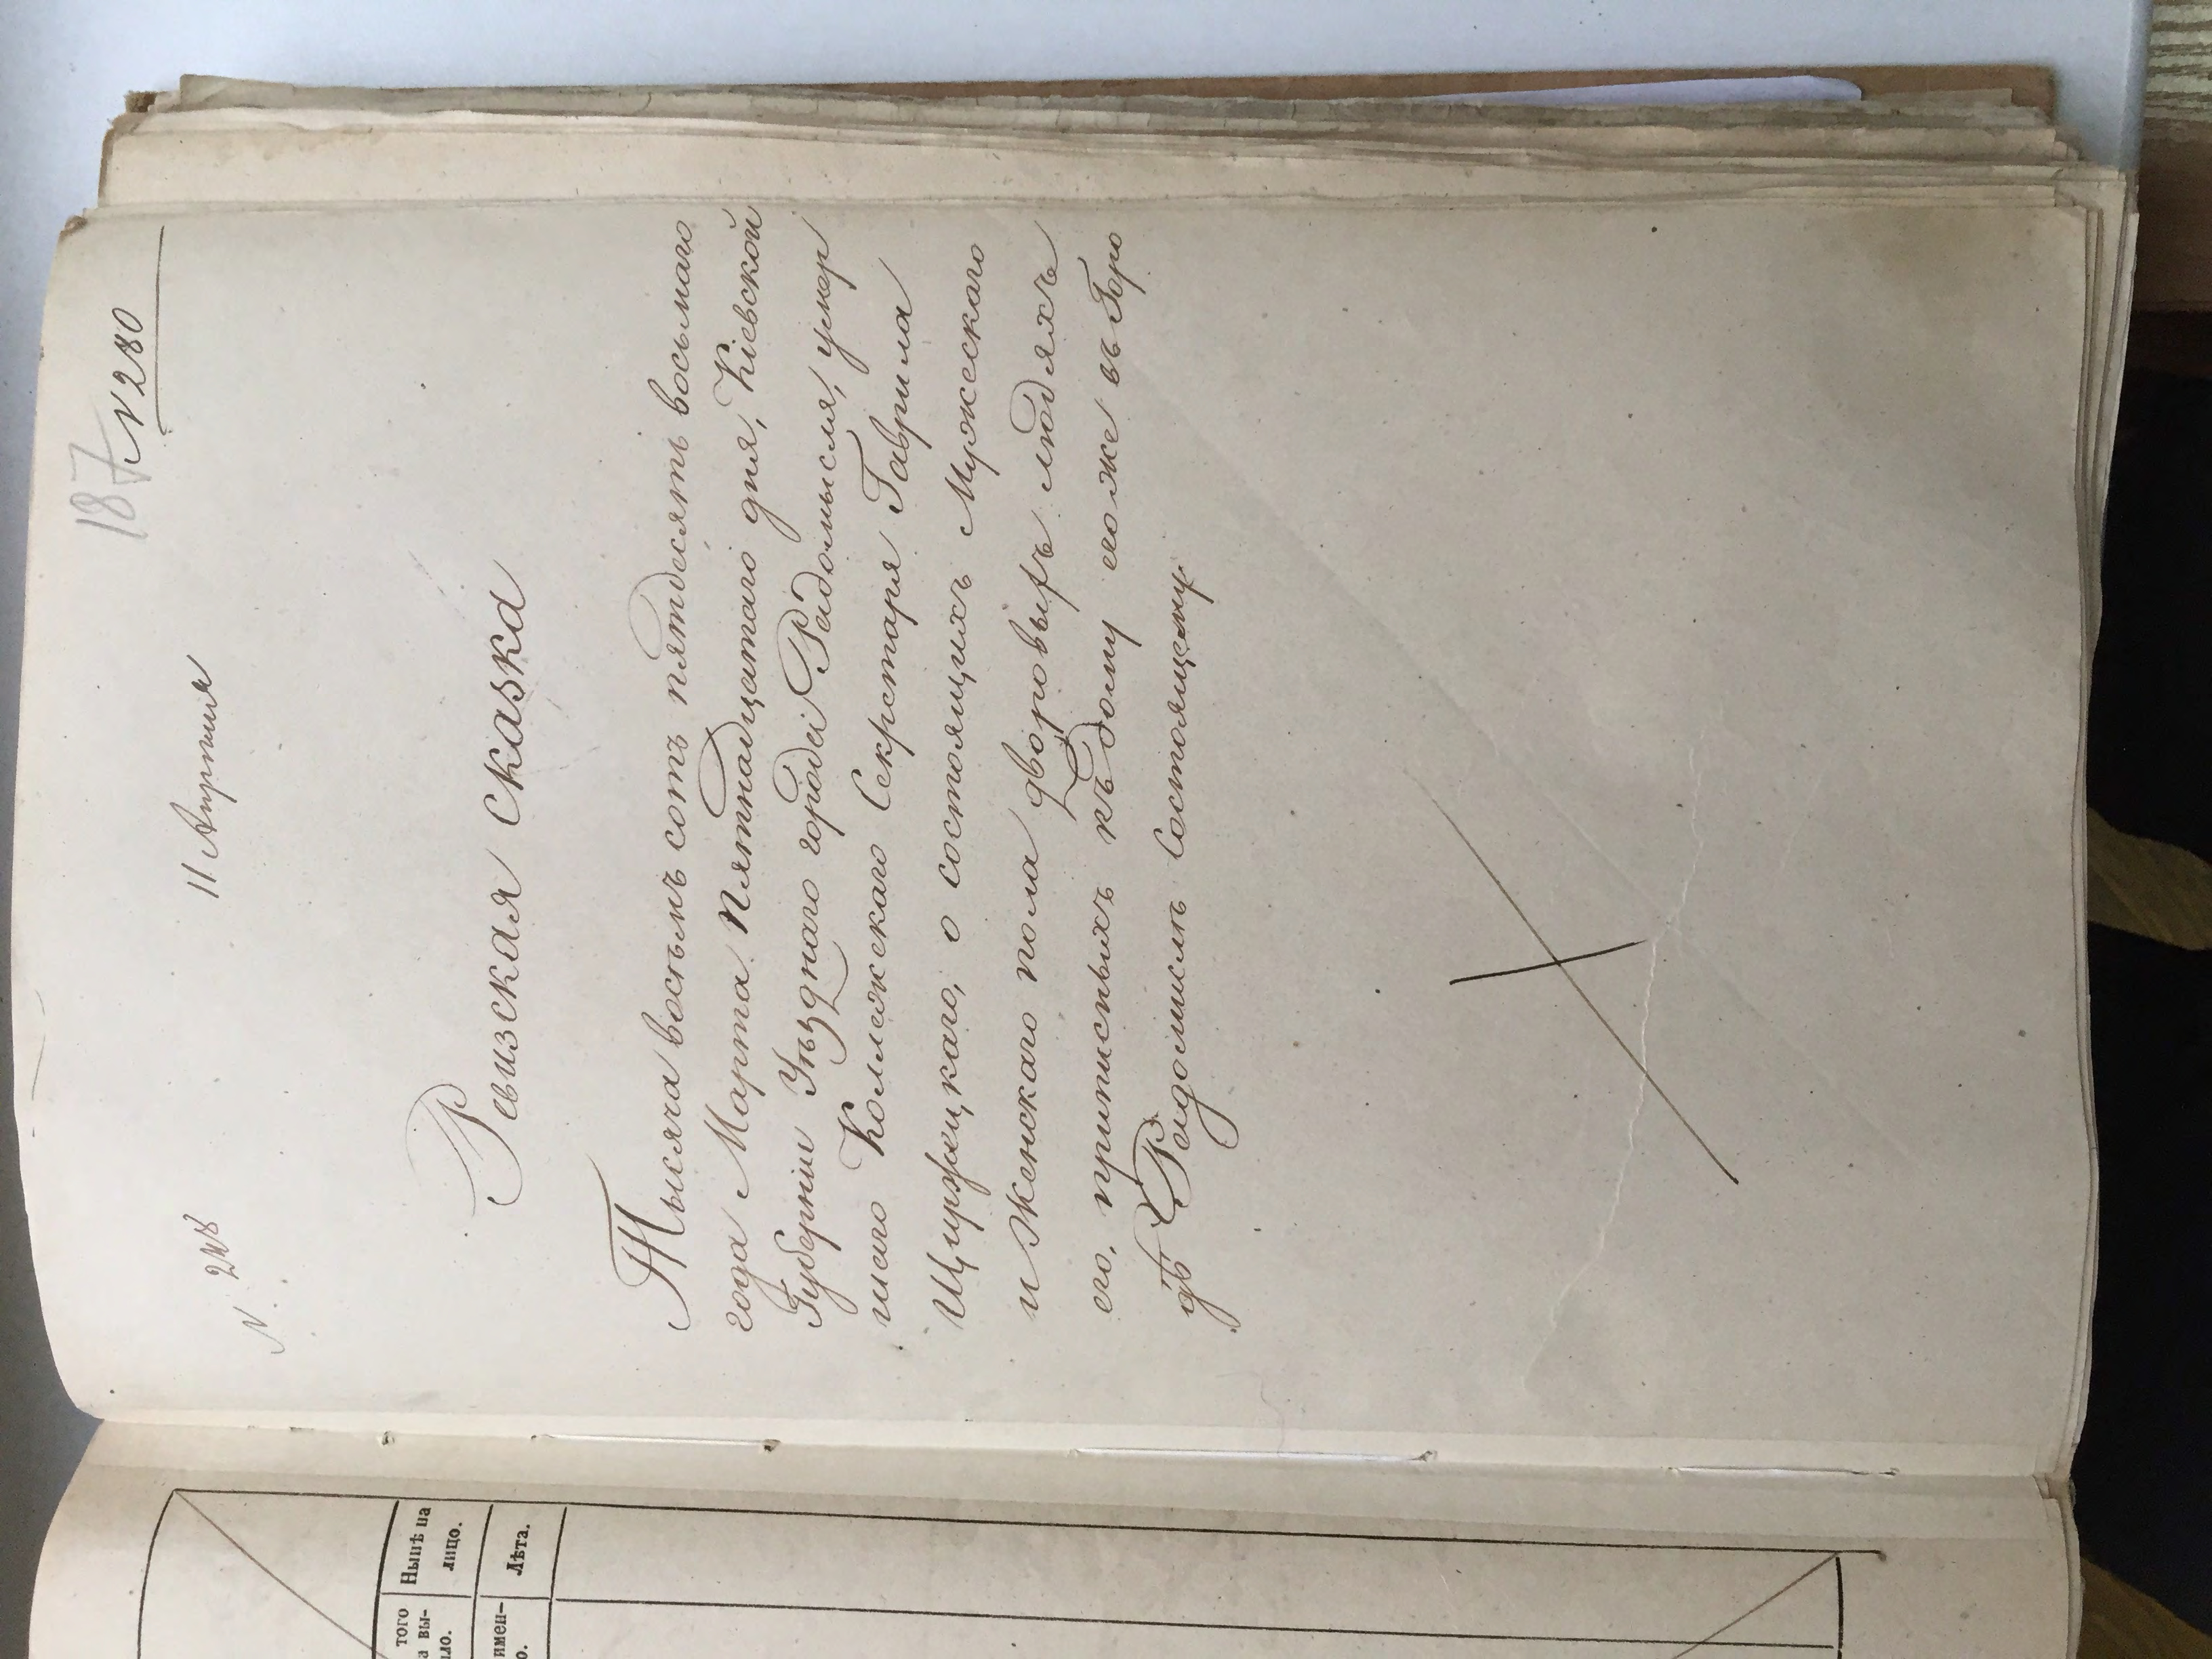 187
N 280
N. 248
11 Апрѣля
Ревизская сказка
Тысяча восемь сотъ пятдесятъ восьмаго
года Марта пятнадцатаго дня, Кіевской
Губерніи Уѣзднаго города Радомысля, умер
шаго Коллежскаго Секретаря Гаврила
о состоящихъ Мужескаго
и Женскаго пола дворовыхъ людяхъ
его, приписныхъ къ дому его же въ Горо
дѣ Радомислѣ Состоящему.
того
а вы-
ло.
Нынѣ на
лицо.
имен-
о.
Лѣта.